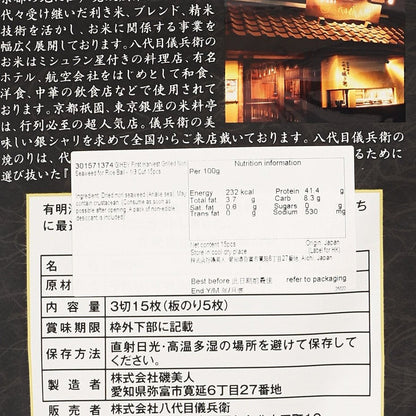 代々受け継いだ利き米、ブレンド、精米
技術を活かし、お米に関する事業を
幅広く展開しております。八代目儀兵衛の
お米はミシュラン星付きの料理店、有名
ホテル、航空会社をはじめとして和食、
洋食、中華の飲食店などで使用されて
おります。京都祇園、東京銀座の米料亭
は、行列必至の超人気店。儀兵衛の美
味しい銀シャリを求めて全国からご来店戴いております。八代目儀兵衛
の焼のりは、代
るために
選び抜いた『
301571374 GIHEY First Harvest Grilled Nori
Seaweed for Rice Ball - 1/3 Cut 15pcs
Ingredient: Dried nori seaweed (Ariake sea). May
contain crustacean. (Consume as soon as
possible after opening. A pack of non-edible
desiccant is included)
Nutrition information
Per 100g
Energy 232 kcal Protein 41.4 g
Total fat 3.7 g Carb 8.3 g
Sat. fat 0.6 g Sugars 0 g
Trans fat 0 g Sodium 530 mg
Net content 15pcs Origin: Japan
Store in cool dry place (Label for HK)
Best before 此日期前最後 refer to packaging
End Y/M 年/月底
有明
に最
名
原材
内容量 3切15枚(板のり5枚)
賞味期限 枠外下部に記載
保存方法 直射日光・高温多湿の場所を避けて保存して
ください。
製造者 株式会社磯美人
愛知県弥富市寛延6丁目27番地
販売者 株式会社八代目儀兵衛